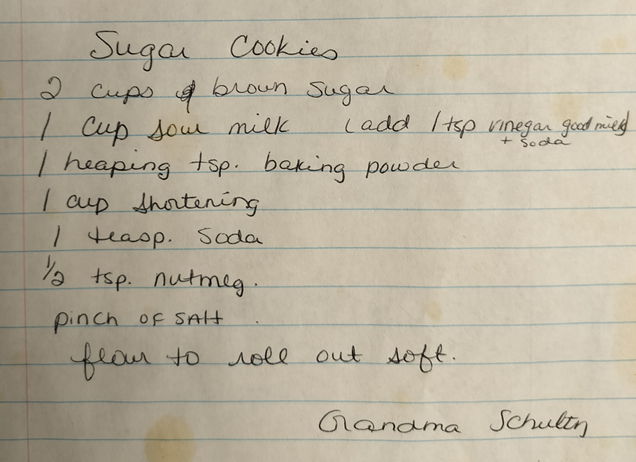 Sugar Cookies
2 cups of brown sugar
1 cup sour milk (add 1 tsp vinegar good milk)
+ soda
1 heaping tsp. baking powder
1 cup shortening
1 teasp. soda
1/2 tsp. nutmeg.
pinch of salt.
flour to roll out soft.
Grandma